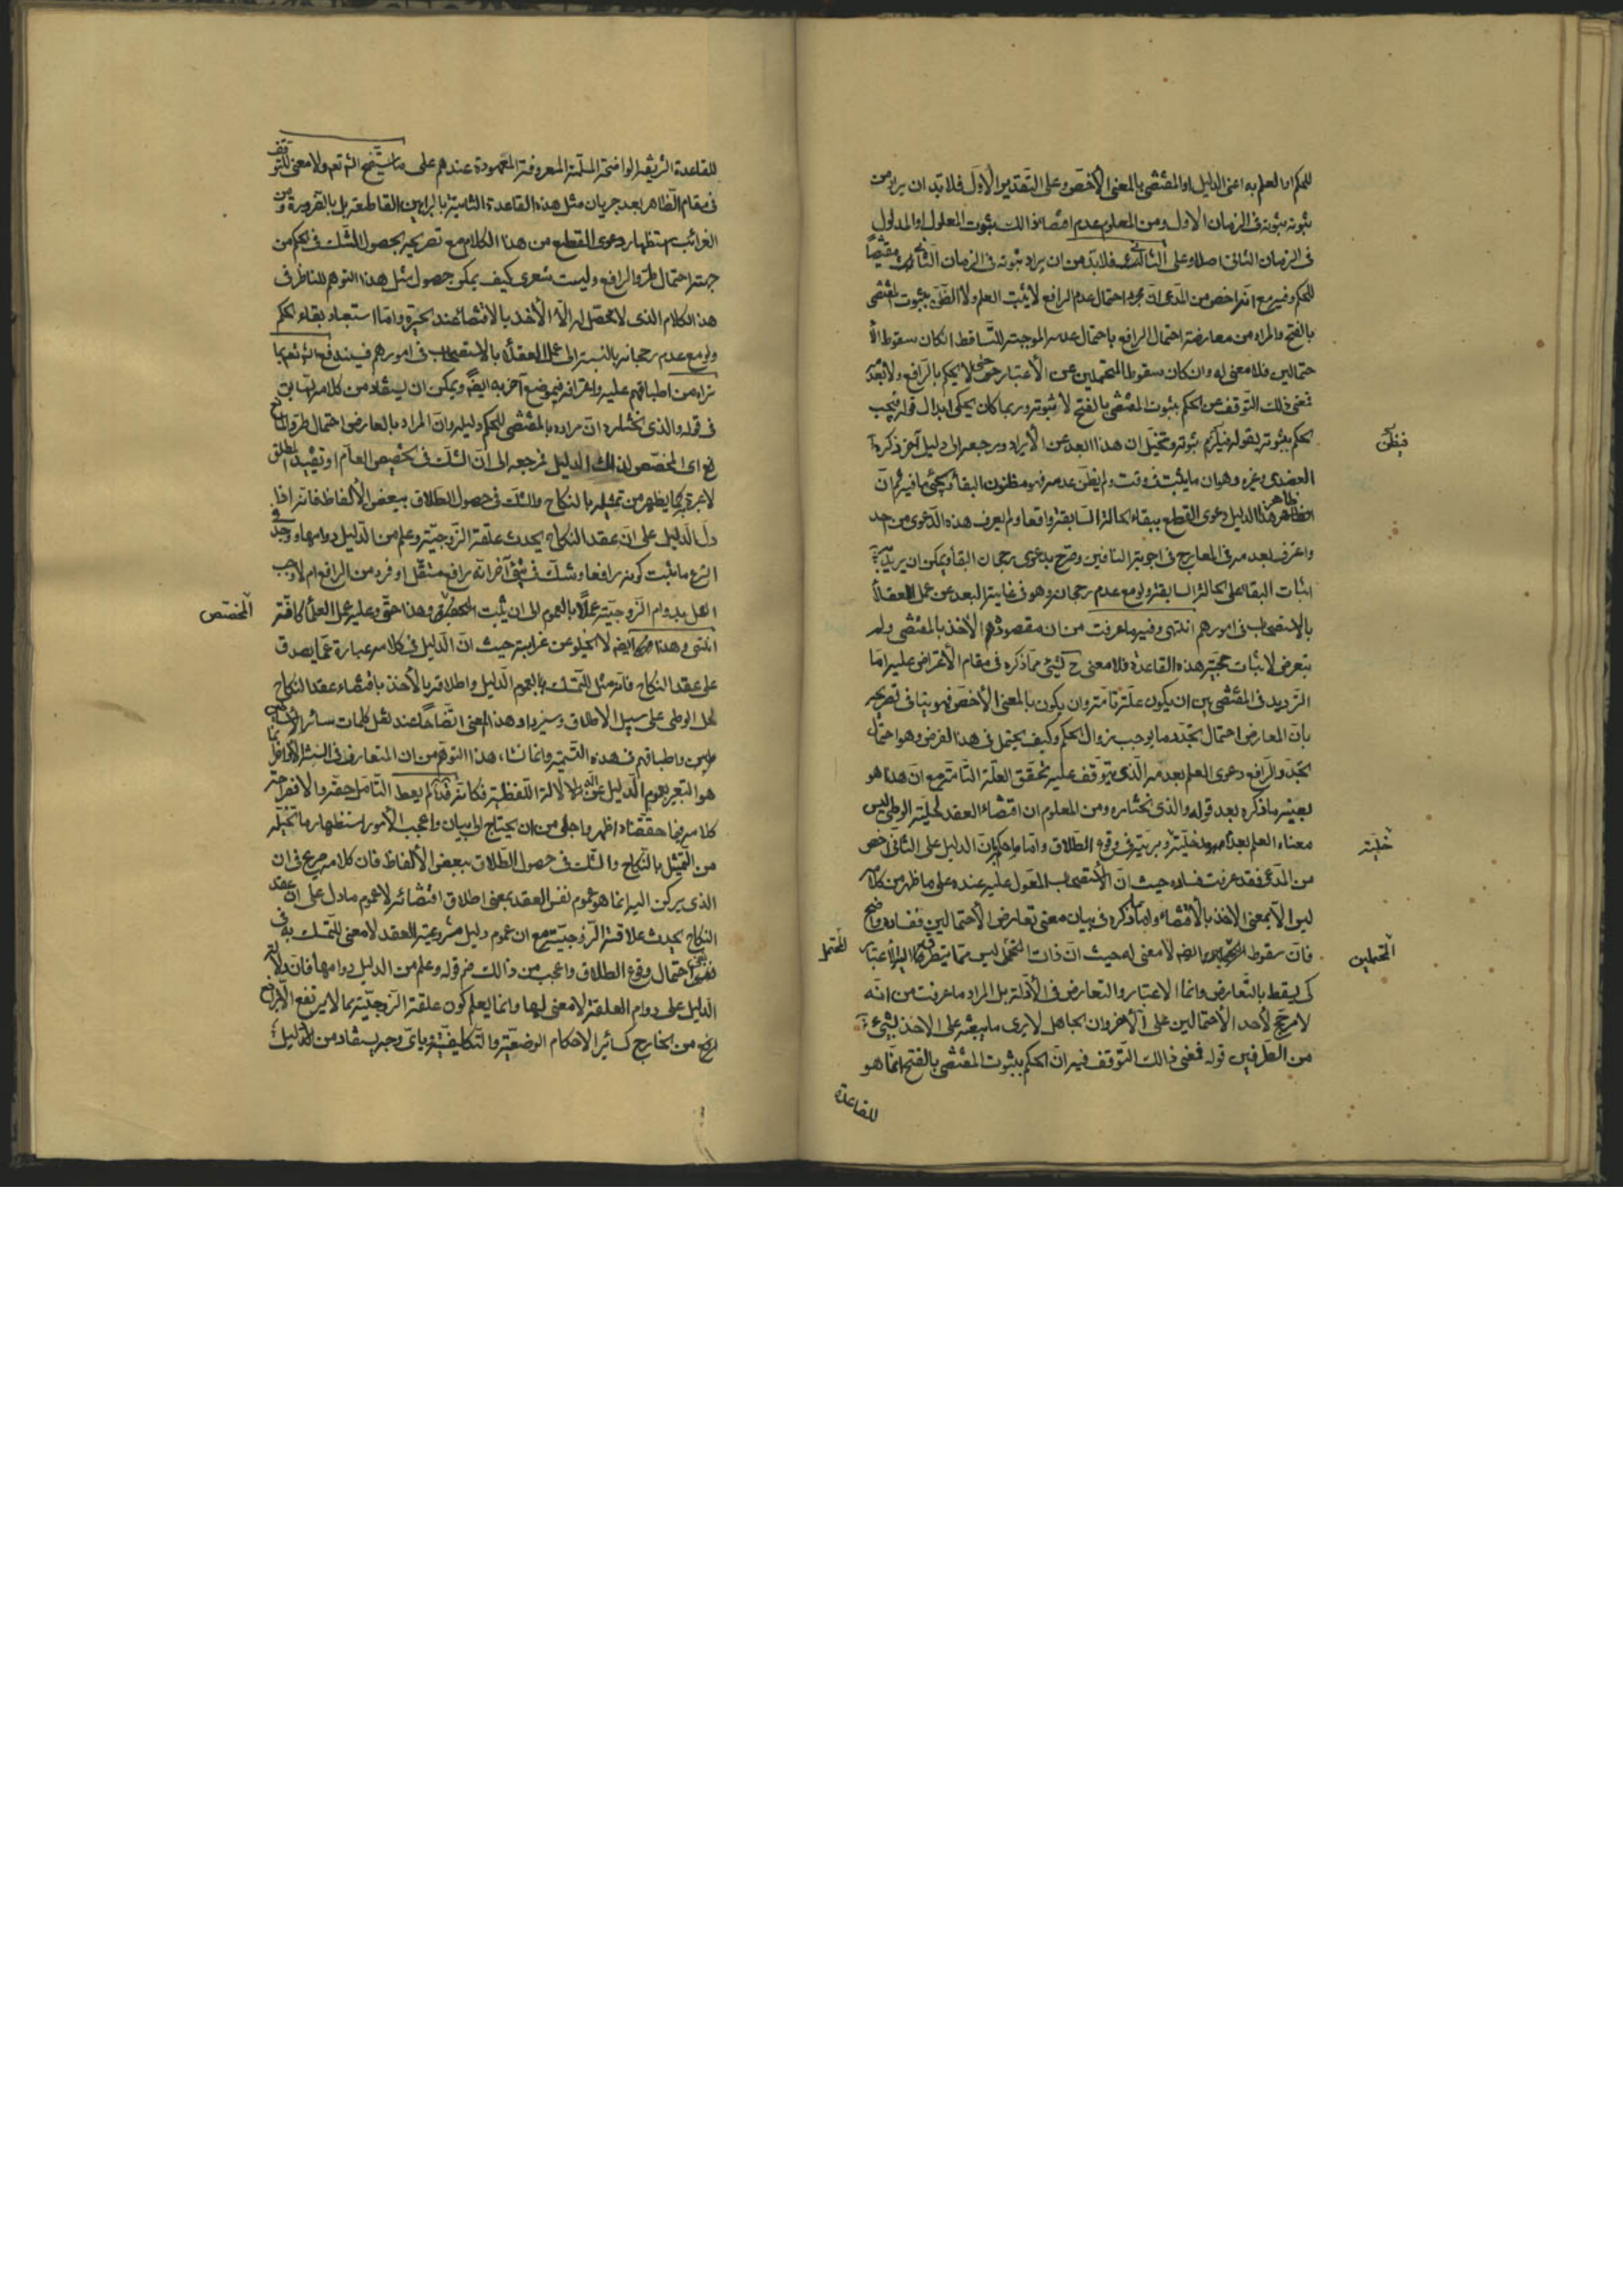 للحكم او العلم به اعنى الدليل او المقتضى بالمعنى الأخص وعلى التقدير الأول فلا بد ان يراد من
ثبوته ثبوته فى الزمان الاول ومن المعلوم عدم اقتضاء ذالك بثبوت المعلول او المدلول
فى الزمان الثانى اصلا وعلى الثالث فلا بد من ان يراد ثبوته فى الزمان الثانى مقتضيا
للحكم وفيه مع انه اخص من المدعى ان مجرد احتمال عدم الرافع لا يثبت العلم ولا الظن بثبوت المقتضى
بالفتح والمراد من معارضة احتمال الرافع باحتمال عدمه الموجبة للتساقط ان كان سقوط الا
حتمالين فلا معنى له وان كان سقوط المحتملين عن الأعتبار حتى لا يحكم بالرافع ولا بعدمه
فمعنى ذلك التوقف عن الحكم بثبوت المقتضى بالفتح لا ثبوته وربما كان يحكى ابدال قوله فيجب
الحكم بثبوته بقوله فيظن ثبوته وتخيل ان هذا ابعد عن الأيراد ومرجعه الى دليل آخر ذكره
فيظن
العضدى وغيره وهو ان ما يثبت فى وقت ولم يظن عدمه فهو مظنون البقاء وسيجئ ما فيه ثم ان
ظاهر هذا الدليل دعوى القطع ببقاء الحالة السابقة واقعا ولم يعرف هذه الدعوى من احد
واعترف بعدمه فى المعارج فى اجوبة النافين وصرح بدعوى رجحان البقاء ويمكن ان يريد به
اثبات البقاء على الحالة السابقة ولو مع عدم رجحانه وهو فى غاية البعد عن عمل العقلاء
بالاستصحاب فى امورهم انتهى وفيه ما عرفت من ان مقصودهم الاخذ بالمقتضى ولم
يتعرض لاثبات حجية هذه القاعدة فلا معنى ح لشئ مما ذكره فى مقام الأعتراض عليه اما
الترديد فى المقتضى بين ان يكون علة تامة وان يكون بالمعنى الأخص فهو ينافى تصريحه
بان المعارض احتمال تجدد ما يوجب زوال الحكم وكيف يحتمل فى هذا الفرض وهو احتمال
تجدد الرافع دعوى العلم بعدمه الذى يتوقف عليه تحقق العلة التامة مع ان هذا هو
بعينه ما ذكره بعد قوله والذى نختاره ومن المعلوم ان اقتضاء العقد لحلية الوطى ليس
معناه العلم بعدم مدخلية فى وقوع الطلاق واما ما حكم بان الدليل على الثانى اخص
خلية
من المدعى فقد عرفت فساده حيث ان الأستصحاب المعول عليه عنده على ما ظهر من كلامه
ليس الا بمعنى الاخذ بالأقتضاء واما ما ذكره فى بيان معنى تعارض الأحتمالين ففساده واضح
فان سقوط ايضا لا معنى له حيث ان ذات المحتمل ليس مما يتطرق اليه الأعتبار
المحتملين
المحتمل
كى يسقط بالتعارض وانما الاعتبار والتعارض فى الأدلة بل المراد ما عرفت من انه
لا مرجح لأحد الأحتمالين على الأخر وان الجاهل لا يرى ما يبعثه على الاخذ بشئ
من الطرفين قوله فمعنى ذالك التوقف فيه ان الحكم بثبوت المقتضى بالفتح انما هو
للقاعدة
للقاعدة الشريفة الواضحة المسلمة المعروفة المعهودة عندهم على ما سيتضح انش تعم ولا معنى للتوقف
فى مقام الظاهر بعد جريان مثل هذه القاعدة الثابتة بالبراهين القاطعة بل بالضرورة ومن
الغرائب استظهار دعوى القطع من هذا الكلام مع تصريحه بحصول الشك فى الحكم من
جهة احتمال طرو الرافع وليت شعرى كيف يمكن حصول مثل هذا التوهم للناظر فى
هذا الكلام الذى لا محصل له الا الأخذ بالاقتضاء عند الحيرة واما استبعاد بقاء الحكم
ولو مع عدم رجحانه بالنسبة الى عمل العقلاء بالاستصحاب فى امورهم فيندفع انش تعم بما
تراه من اطباقهم عليه واعترافه فى موضع آخر به ايضا ويمكن ان يستفاد من كلامه السابق
فى قوله والذى نختاره ان مراده بالمقتضى للحكم دليله وان المراد بالعارض احتمال طرو المانع
اى المخصص لذالك الدليل فمرجعه الى ان الشك فى تخصيص العام او تقييد المطلق
لا عبرة به كما يظهر من تمثيله بالنكاح والشك فى حصول الطلاق ببعض الألفاظ فانه اذا
دل الدليل على ان عقد النكاح يحدث علقة الزوجية وعلم من الدليل دوامها ووجد فى
الشرع ما ثبت كونه رافعا وشك فى شئ آخر انه رافع مستقل او فرد من الرافع ام لا وجب
العمل بدوام الزوجية عملا بالعموم الى ان يثبت المخصص وهذا حق وعليه عمل العلماء كافة
المخصص
انتهى وهذا ايضا لا يخلو عن غرابة حيث ان الدليل فى كلامه عبارة عما يصدق
على عقد النكاح فانه مثل للتمسك بعموم الدليل واطلاقه بالأخذ باقتضاء عقد النكاح
لحل الوطى على سبيل الاطلاق وسيزداد هذا المعنى اتضاحا عند نقل كلمات سائر الأسا
طين واطباقهم فى هذه التسمية وانما نشاء هذا التوهم من ان المتعارف فى السنة الأواخر انما
هو التعبير بعموم الدليل عن الدلالة اللفظية فكانه قده لم يعط التأمل حقه والا فصراحة
كلامه فيما حققناه اظهر واجلى من ان يحتاج الى بيان واعجب الأمور استظهار ما تخيله
من التمثيل بالنكاح والشك فى حصول الطلاق ببعض الألفاظ فان كلامه صريح فى ان
الذى يركن اليه انما هو عموم نفس العقد بمعنى اطلاق اقتضائه لا عموم ما دل على ان عقد
النكاح يحدث علاقة الزوجية مع ان عموم دليل مشروعية العقد لا معنى للتمسك به فى
نفى احتمال وقوع الطلاق واعجب من ذالك قوله وعلم من الدليل دوامها فان دلالة
الدليل على دوام العلقة لا معنى لها وانما يعلم كون علقة الزوجية مما لا يرتفع الا برافع
من الخارج كسائر الاحكام الوضعية والتكليفية وباى وجه يستفاد من الدليل